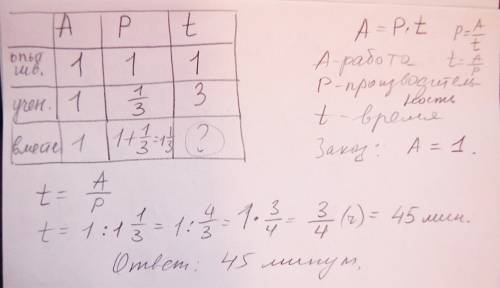 A P t
опыт. шв. 1 1 1
учен. 1 1/3 3
вместе 1 1+1/3=1 1/3 ?
A = P·t P = A/t
A-работа t = A/P
P-производитель
ность
t - время
Заказ: A = 1.
t = A/P
t = 1 : 1 1/3 = 1 : 4/3 = 1 · 3/4 = 3/4 (ч) = 45 мин.
Ответ: 45 минут.